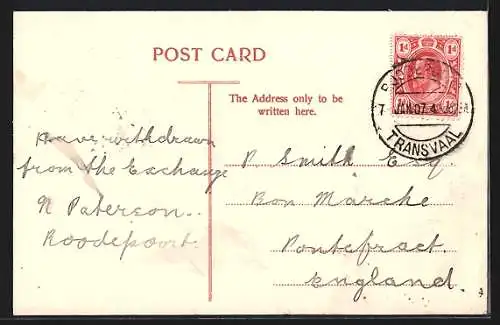 POST CARD
The Address only to be
written here.
1d 1d
7 JAN.07.4
TRANSVAAL
Have withdrawn
from the Exchange
N Paterson..
Roodepoort.
P. Smith Esq.
Bon Marche
Pontefract.
England.